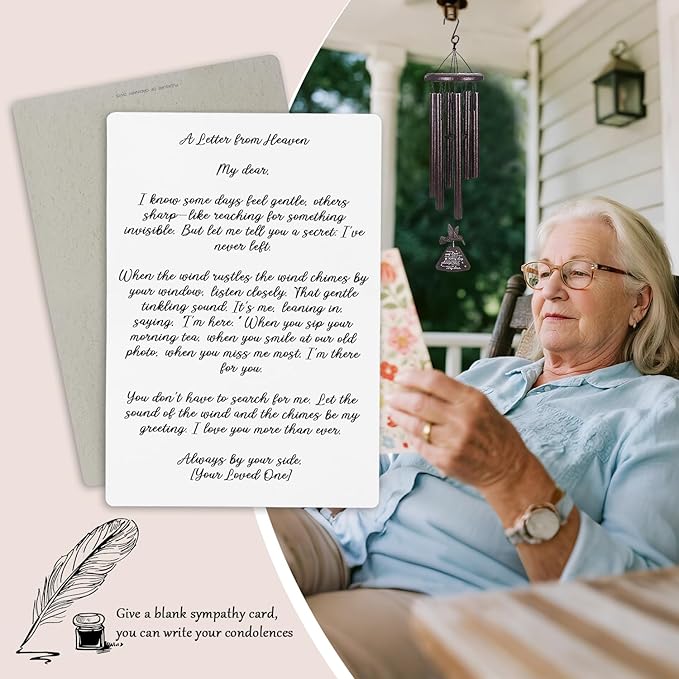 A Letter from Heaven
My dear,
I know some days feel gentle, others
sharp—like reaching for something
invisible. But let me tell you a secret: I've
never left.
When the wind rustles the wind chimes by
your window, listen closely. That gentle
tinkling sound. It's me, leaning in,
saying, "I'm here." When you sip your
morning tea, when you smile at our old
photo, when you miss me most, I'm there
for you.
You don't have to search for me. Let the
sound of the wind and the chimes be my
greeting. I love you more than ever.
Always by your side,
[Your Loved One]
Give a blank sympathy card,
you can write your condolences